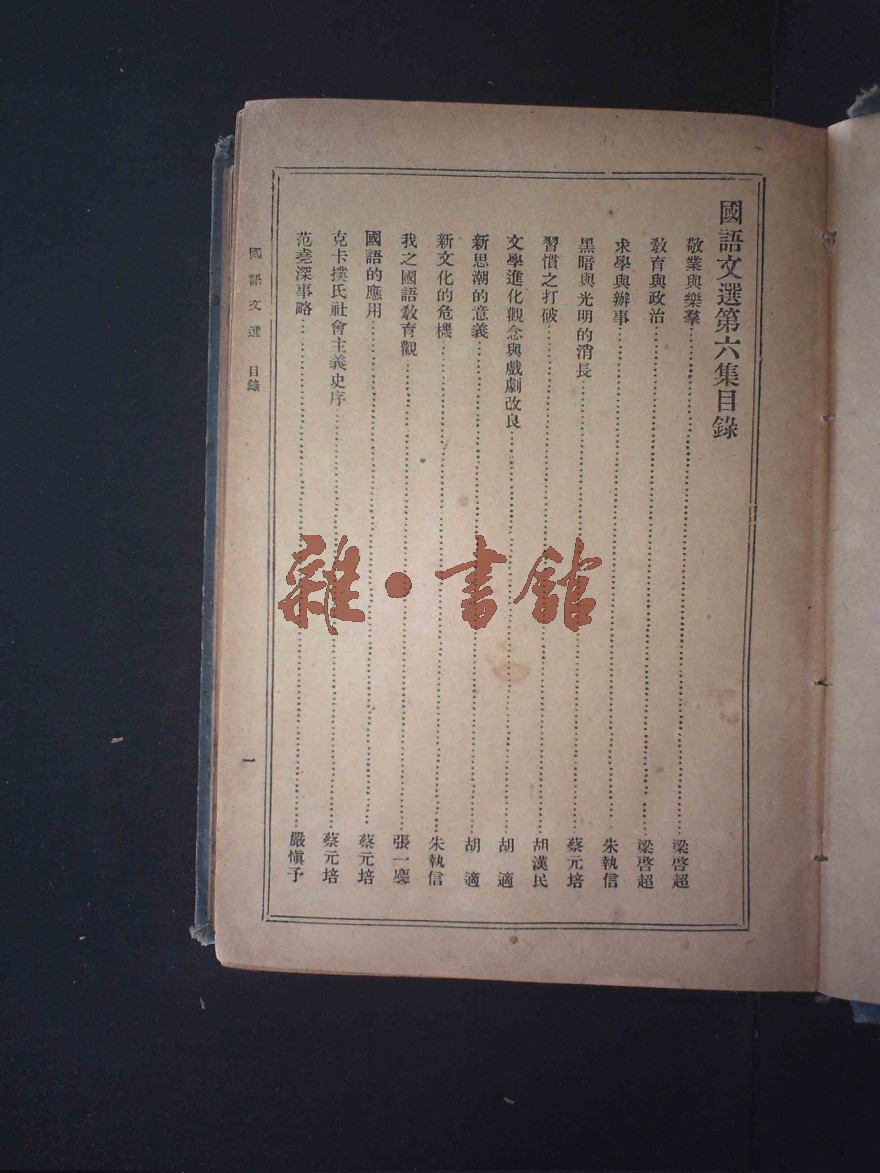 國語文選第六集目錄
敬業與樂羣……梁啓超
敎育與政治……梁啓超
求學與辦事……朱執信
黑暗與光明的消長……蔡元培
習慣之打破……胡漢民
文學進化觀念與戲劇改良……胡適
新思潮的意義……胡適
新文化的危機……朱執信
我之國語敎育觀……張一麐
國語的應用……蔡元培
克卡撲氏社會主義史序……蔡元培
范堯深事略……嚴愼予
國語文選 目錄
一
雜·書館